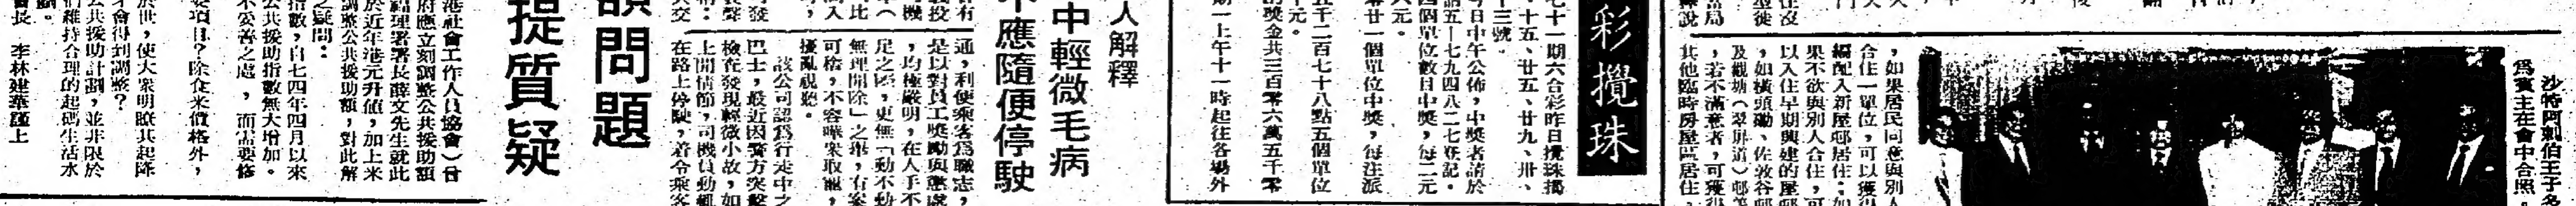 沙特阿剌伯王子多
為賓主在會中合照。
，如果居民同意與別人
合住一單位，可以獲得
編配入新屋邨居住；如
果不欲與別人合住，可
以入住早期興建的屋邨
，如橫頭磡、佐敦谷邨
及觀塘（翠屏道）邨等
，若不滿意者，可獲得
其他臨時房屋區居住，
彩攪珠
七十一期六合彩昨日攪珠揭
、十五、廿五、廿九、卅、
十三號。
今日中午公佈，中獎者請於
話五—七九四八二七登記。
四個單位數目中獎，每二元
六元。
零廿一個單位中獎，每注派
五千二百七十八點五個單位
十元。
的獎金共三百零六萬五千零
期一上午十一時起往各場外
人解釋
中輕微毛病
不應隨便停駛
通，利便乘客為職志，
是以對員工獎勵與懲處
，均極嚴明，在人手不
足之際，更無「動不動
無理開除」之舉，有案
可稽，不容嘩眾取寵，
擾亂視聽。
該公司認為行走中之
巴士，最近因警方突擊
檢查發現輕微小故，如
上開情節，司機員動輒
在路上停駛，着令乘客
額問題
提質疑
港社會工作人員協會）曾
府應立刻調整公共援助額
福理署署長薛文先生就此
於近年港元升值，加上米
調整公共援助額，對此解
之疑問：
指數，自七四年四月以來
公共援助指數無大增加。
不妥善之處，而需要修
要項目？除食米價格外，
於世，使大眾明瞭其起降
才會得到調整？
公共援助計劃，並非限於
們維持合理的起碼生活水
會長　李林建華謹上